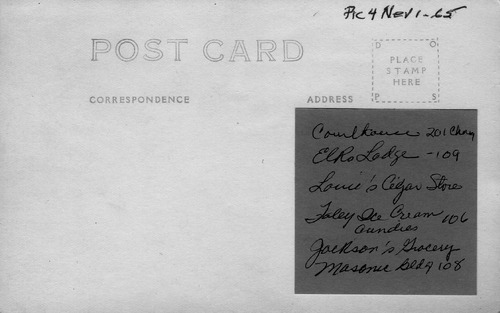 Pic 4 Nev 1-65
POST CARD
D O
PLACE
STAMP
HERE
P S
CORRESPONDENCE
ADDRESS
Courthouse 201
Elks Lodge - 109
Louie's Cigar Store
Foley Ice Cream 106
Jackson's Grocery
Masonic bldg 108